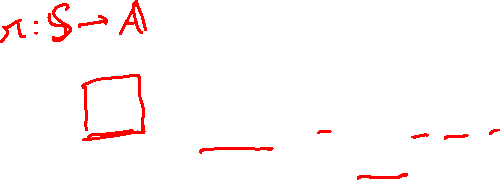 π: 𝕊 → 𝔸